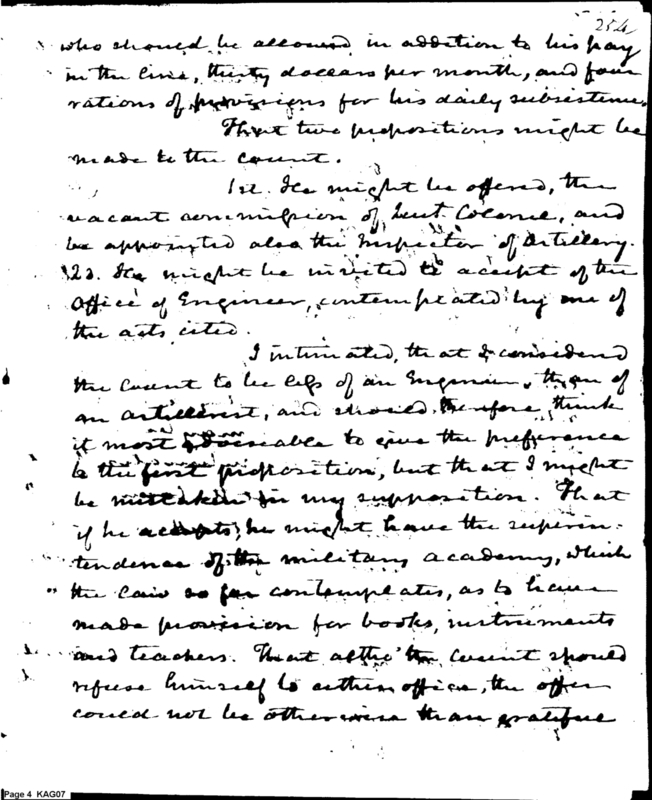 254
who should be allowed in addition to his pay
in the line, thirty dollars per month, and four
rations of provisions for his daily subsistence.
That two propositions might be
made to the count.
1st. He might be offered, the
vacant commission of Lieut. Colonel, and
be appointed also the Inspector of Artillery.
2d. He might be invited to accept of the
Office of Engineer, contemplated by one of
the acts cited.
I intimated, that I considered
the Count to be less of an Engineer, than of
an artillerist, and should therefore, think
it most adviseable to give the preference
to the first proposition, but that I might
be mistaken in my supposition. That
if he accepts, he might have the superin-
tendence of the military academy, which
the law so far contemplates, as to have
made provision for books, instruments
and teachers. That altho' the Count should
refuse himself to either office, the offer
could not be otherwise than grateful
Page 4 KAG07